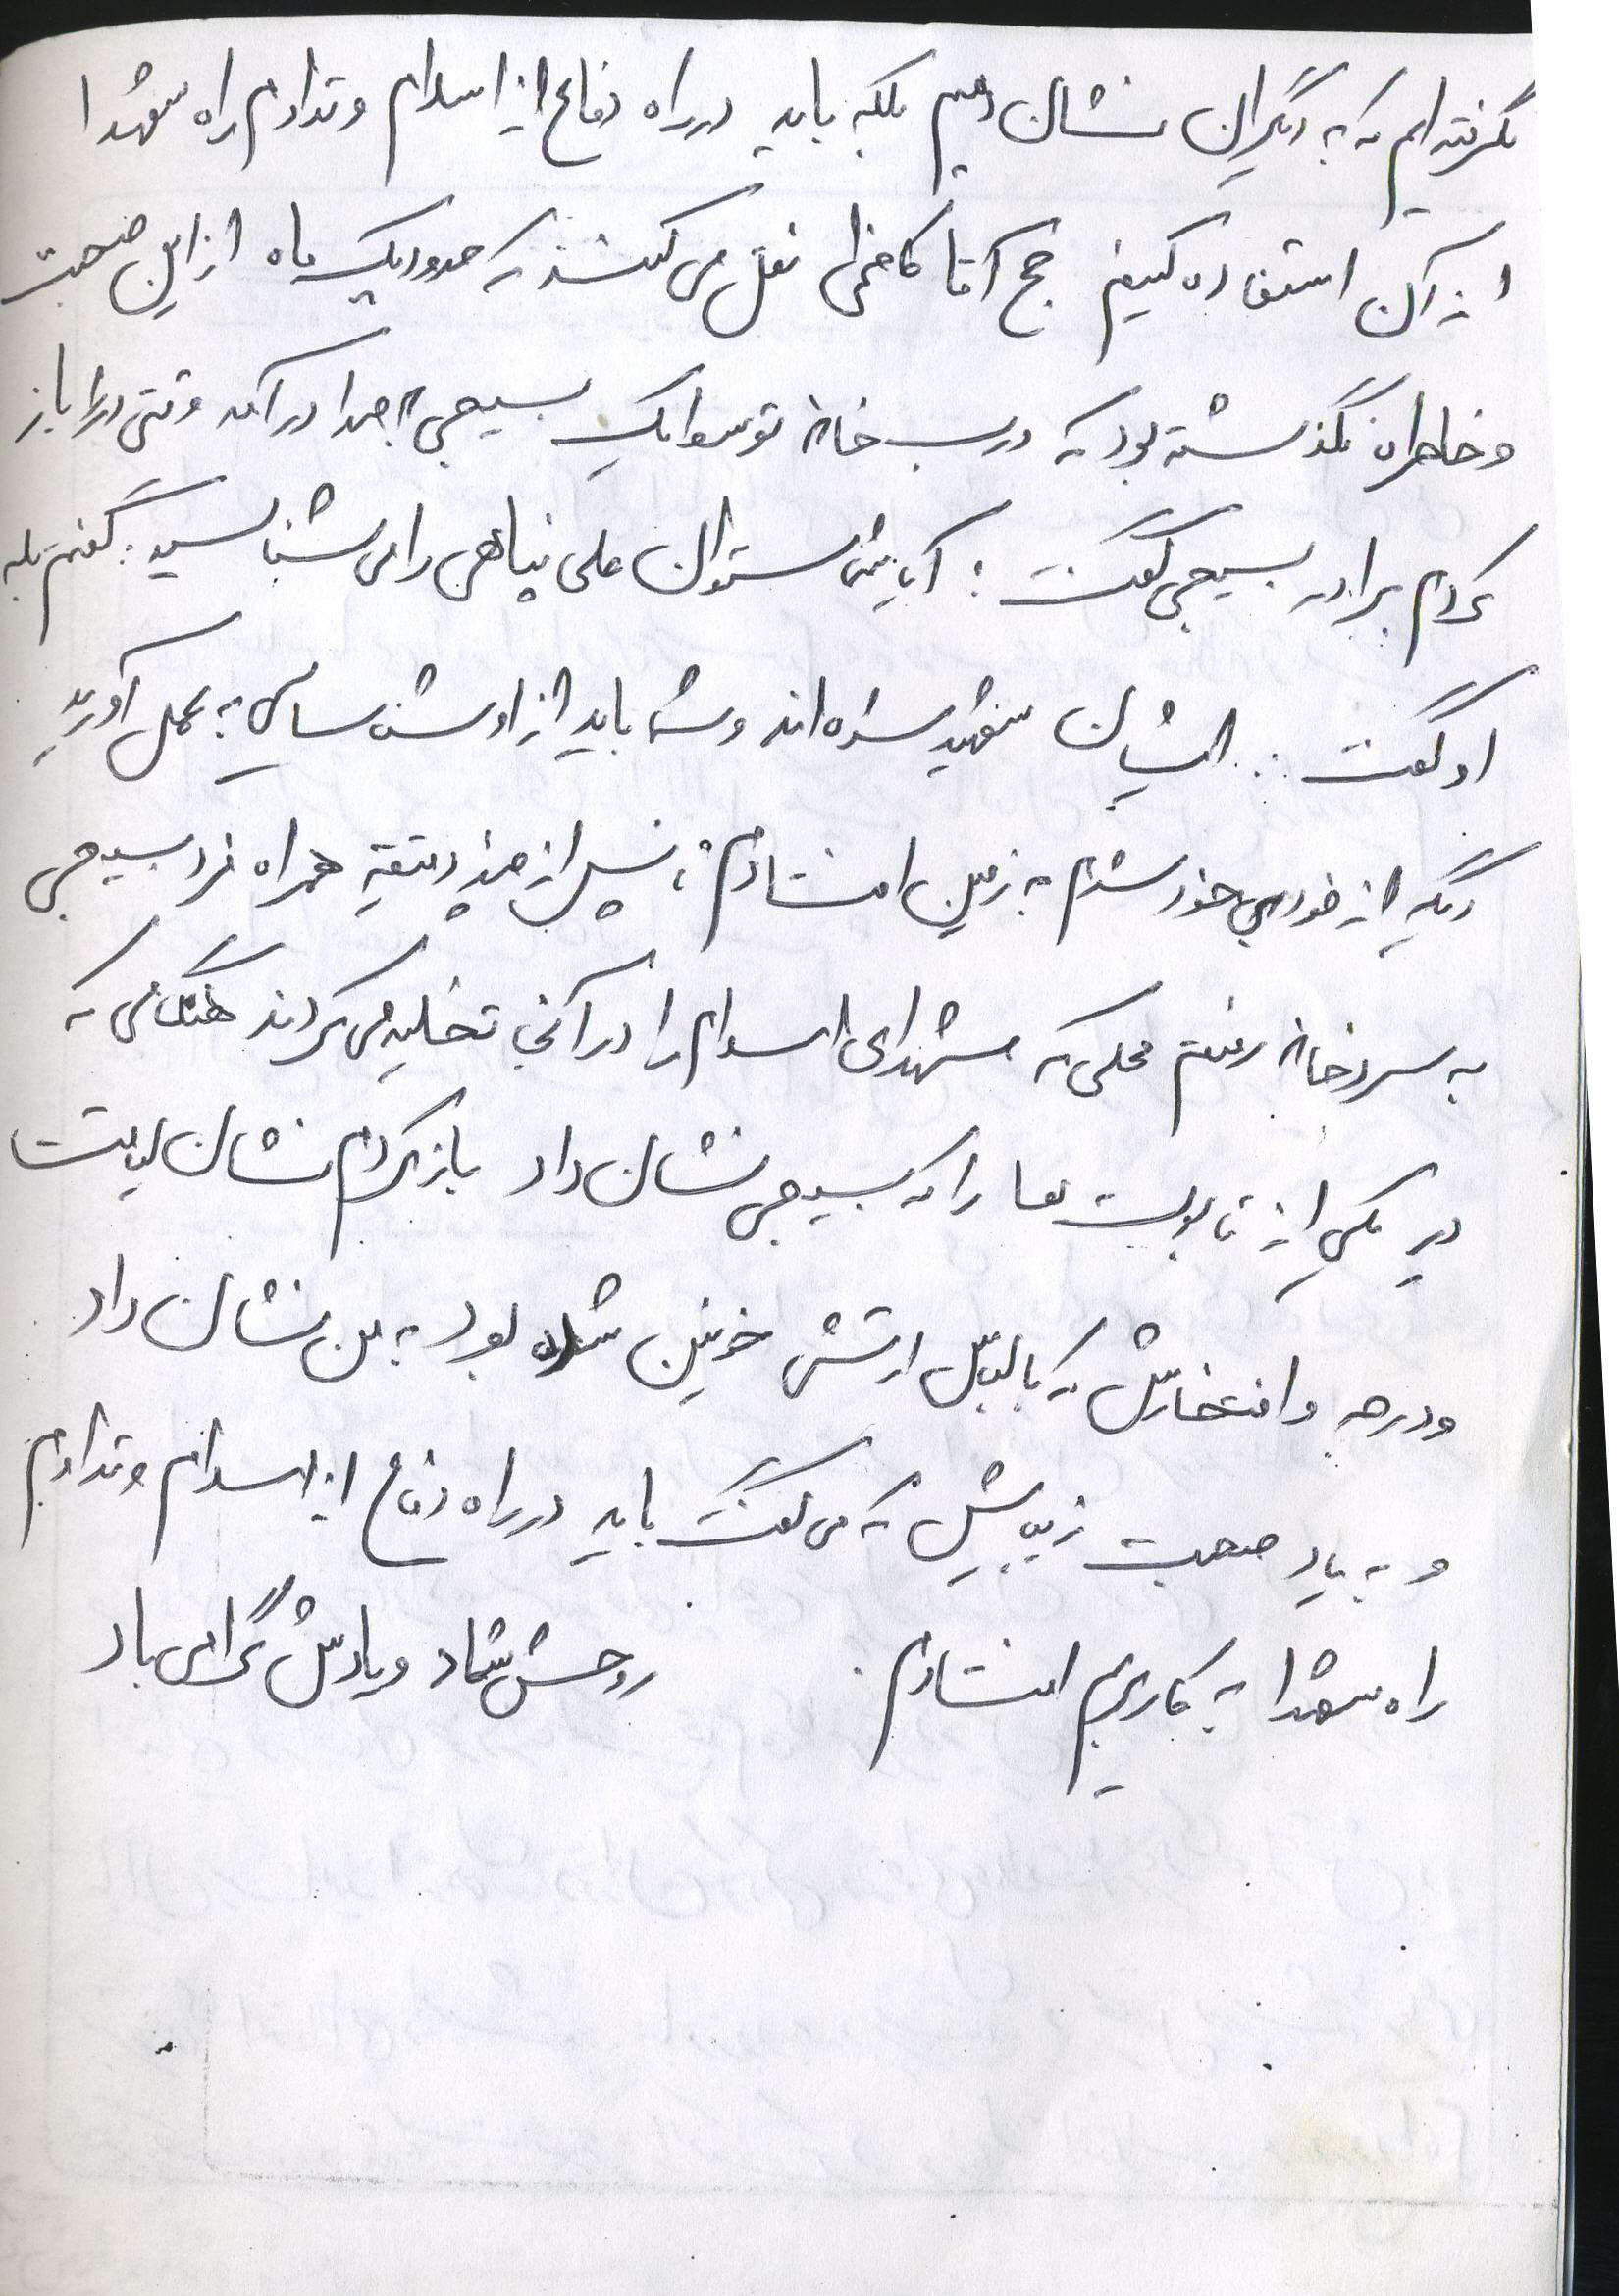 نگرفته ایم که به دیگران نشان دهیم بلکه باید در راه دفاع از اسلام و تداوم راه شهدا
از آن استفاده کنیم حج آقا کاظمی نقل می کنند که حدود یک ماه از این صحبت
و خاطره نگذشته بود که درب خانه توسط یک بسیجی بصدا در آمد وقتی در را باز
کردم برادر بسیجی گفت : آیا شما ستوان علی پناهی را می شناسید . گفتم بله
او گفت : ایشان شهید شده اند و شما باید از او شناسایی به عمل آورید
دیگه از خود بی خود شدم به زمین افتادم ، پس از چند دقیقه همراه فرد بسیجی
به سردخانه رفتم محلی که شهدای اسلام را در آنجا تخلیه می کردند هنگامی که
در یکی از تابوت ها را که بسیجی نشان داد باز کردم نشان لیاقت
و درجه و افتخارش که با لباس ارتش خونین شده بود به من نشان داد
و به یاد صحبت زیبایش که می گفت باید در راه دفاع از اسلام و تداوم
راه شهدا به کار بریم افتادم . روحش شاد و یادش گرامی باد